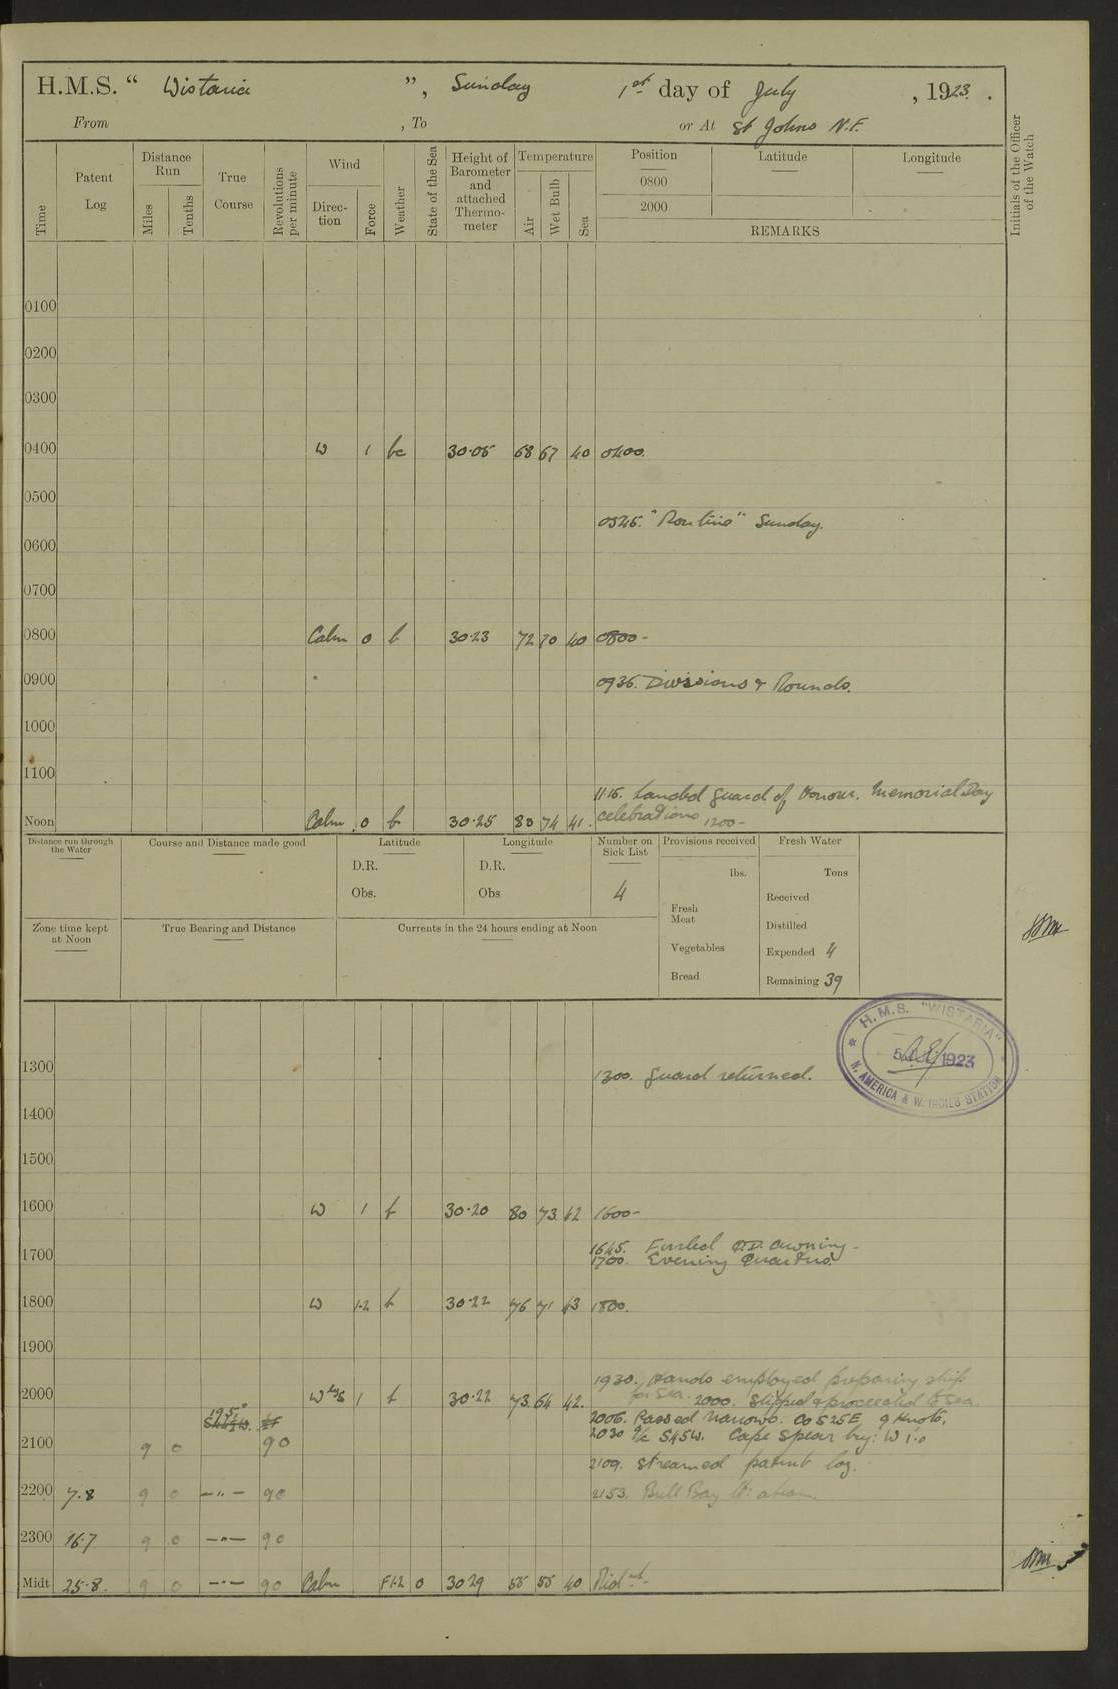 H.M.S. “ Wistaria ”, Sunday 1st day of July , 1923 .
From , To or At St Johns N.F.
Time
Patent Log
Distance Run
Miles
Tenths
True Course
Revolutions per minute
Wind
Direction
Force
Weather
State of the Sea
Height of Barometer and attached Thermometer
Temperature
Air
Wet Bulb
Sea
Position
0800
2000
Latitude
Longitude
REMARKS
Initials of the Officer of the Watch
0100
0200
0300
0400 W 1 bc 30.05 68 67 40 0400.
0500
0545. "Routine" Sunday.
0600
0700
0800 Calm 0 b 30.23 72 70 40 0800-
0900 0935. Divisions & Rounds.
1000
1100
1115. Landed guard of honour. Memorial Day
Noon Calm 0 b 30.25 80 74 41. celebrations 1200-
Distance run through the Water
Course and Distance made good
Latitude
D.R.
Obs.
Longitude
D.R.
Obs
Number on Sick List
4
Provisions received
lbs.
Fresh Meat
Vegetables
Bread
Fresh Water
Tons
Received
Distilled
Expended 4
Remaining 39
Zone time kept at Noon
True Bearing and Distance
Currents in the 24 hours ending at Noon
H.M.S. "WISTARIA"
1923
N. AMERICA & W. INDIES STATION
1300 1300. Guard returned.
1400
1500
1600 W 1 b 30.20 80 73 42 1600-
1645. Furled Q.D. awning-
1700 1700. Evening Quarters.
1800 W 1-2 b 30.22 76 71 43 1800.
1900
1930. Hands employed preparing ship
2000 W by S 1 b 30.22 73 64 42. for sea. 2000. Slipped & proceeded to sea.
195° 2006. Passed Narrows. Co S25E 9 knots.
2030 a/c S45W. Cape Spear brg: W 1'.0
2100 9 0 90
2109. Streamed patent log.
2200 7.8 9 0 —"— 90 2153. Bull Bay Lt: abeam.
2300 16.7 9 0 —"— 90
Midt 25.8. 9 0 —"— 90 Calm F1-2 0 30 29 55 55 40 Midnt-